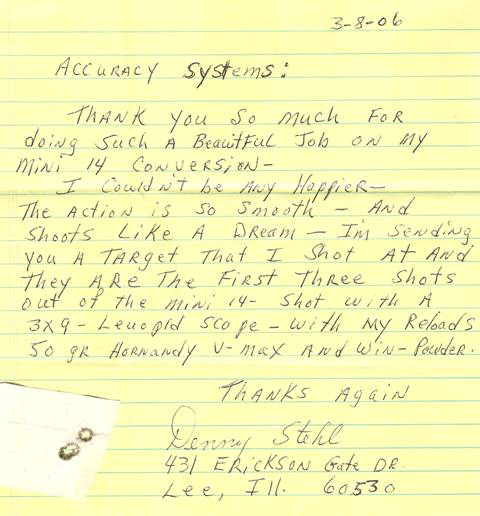 3-8-06
Accuracy Systems:
Thank you so much for
doing such a Beautful Job on my
mini 14 conversion-
I couldn't be any Happier-
The Action is so smooth - And
shoots Like A Dream - I'm sending
you A Target That I shot At And
They Are The First Three shots
out of the mini 14- shot with A
3x9 - Leuopld scope - with my Reloads
50 gr Hornandy V-max And Win-Powder.
Thanks Again
Denny Stehl
431 Erickson Gate DR.
Lee, Ill. 60530